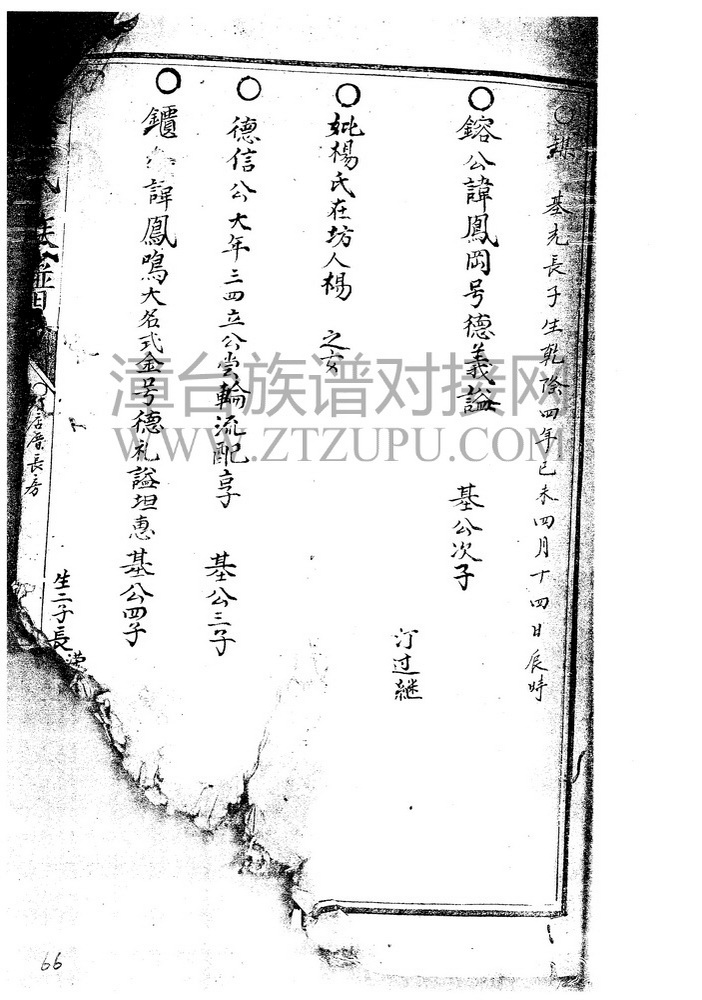 基光長子生乾隆四年己未四月十四日辰時
○鎔公諱鳳岡号德義謚　基公次子
汀过継
○妣楊氏在坊人楊　之女
○德信公大年三四立公嘗輪流配享　基公三子
○鑎　諱鳳鳴大名式金号德礼謚坦惠　基公四子
生二子長
長房
漳台族谱对接网
WWW.ZTZUPU.COM
66